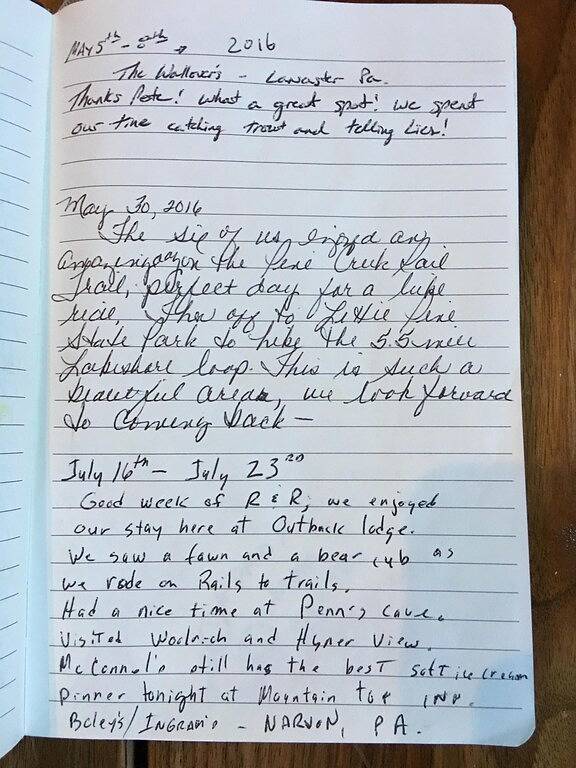 MAY 5th - 8th → 2016
The Wallover's - Lancaster Pa.
Thanks Pete! What a great spot! We spent
our time catching trout and telling Lies!
May 30, 2016
The six of us enjoyed an
amazing day on the Pine Creek Rail
Trail, perfect day for a bike
ride. Then off to Little Pine
State Park to hike the 5.5 mile
Lakeshore loop. This is such a
beautiful area, we look forward
to coming back —
July 16th - July 23rd
Good week of R & R; we enjoyed
our stay here at Outback lodge.
We saw a fawn and a bear cub as
we rode on Rails to trails.
Had a nice time at Penn's Cave.
Visited Woolrich and Hyner View.
McConnel's still has the best soft ice cream
Dinner tonight at Mountain top inn.
Boley's/INGRAM'S - NARVON, PA.